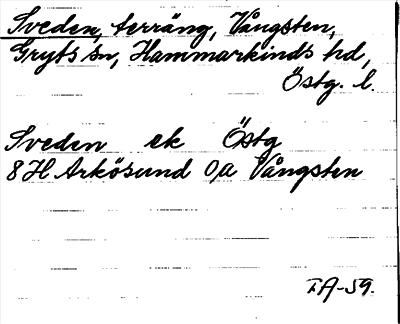 Sveden, terräng, Vångsten,
Gryts sn, Hammarkinds hd,
Östg. l.
Sveden ek Östg
8H Arkösund 0,a Vångsten
TA-59.